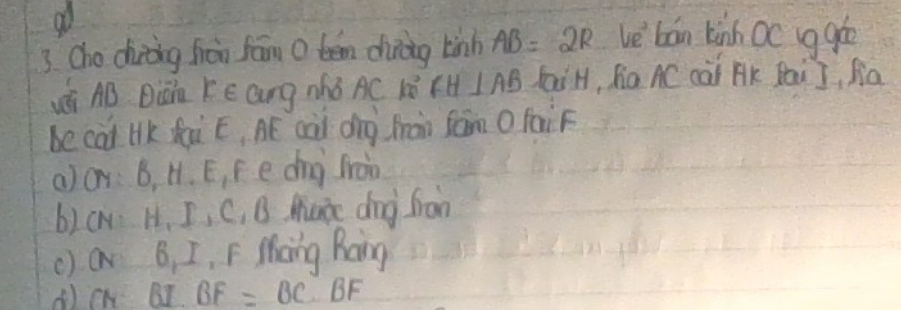 3. Cho đường tròn tâm O bán đường kính AB = 2R. Vẽ bán kính OC v góc
với AB. Điểm K ∈ cung nhỏ AC kẻ KH ⊥ AB tại H, tia AC cắt HK tại I, tia
BC cắt HK tại E, AE cắt đng tròn tâm O tại F
a) CM: B, H, E, F ∈ đng tròn
b) CM: H, I, C, B thuộc đng tròn
c) CM B, I, F thẳng hàng
d) CM BI. BF = BC. BF